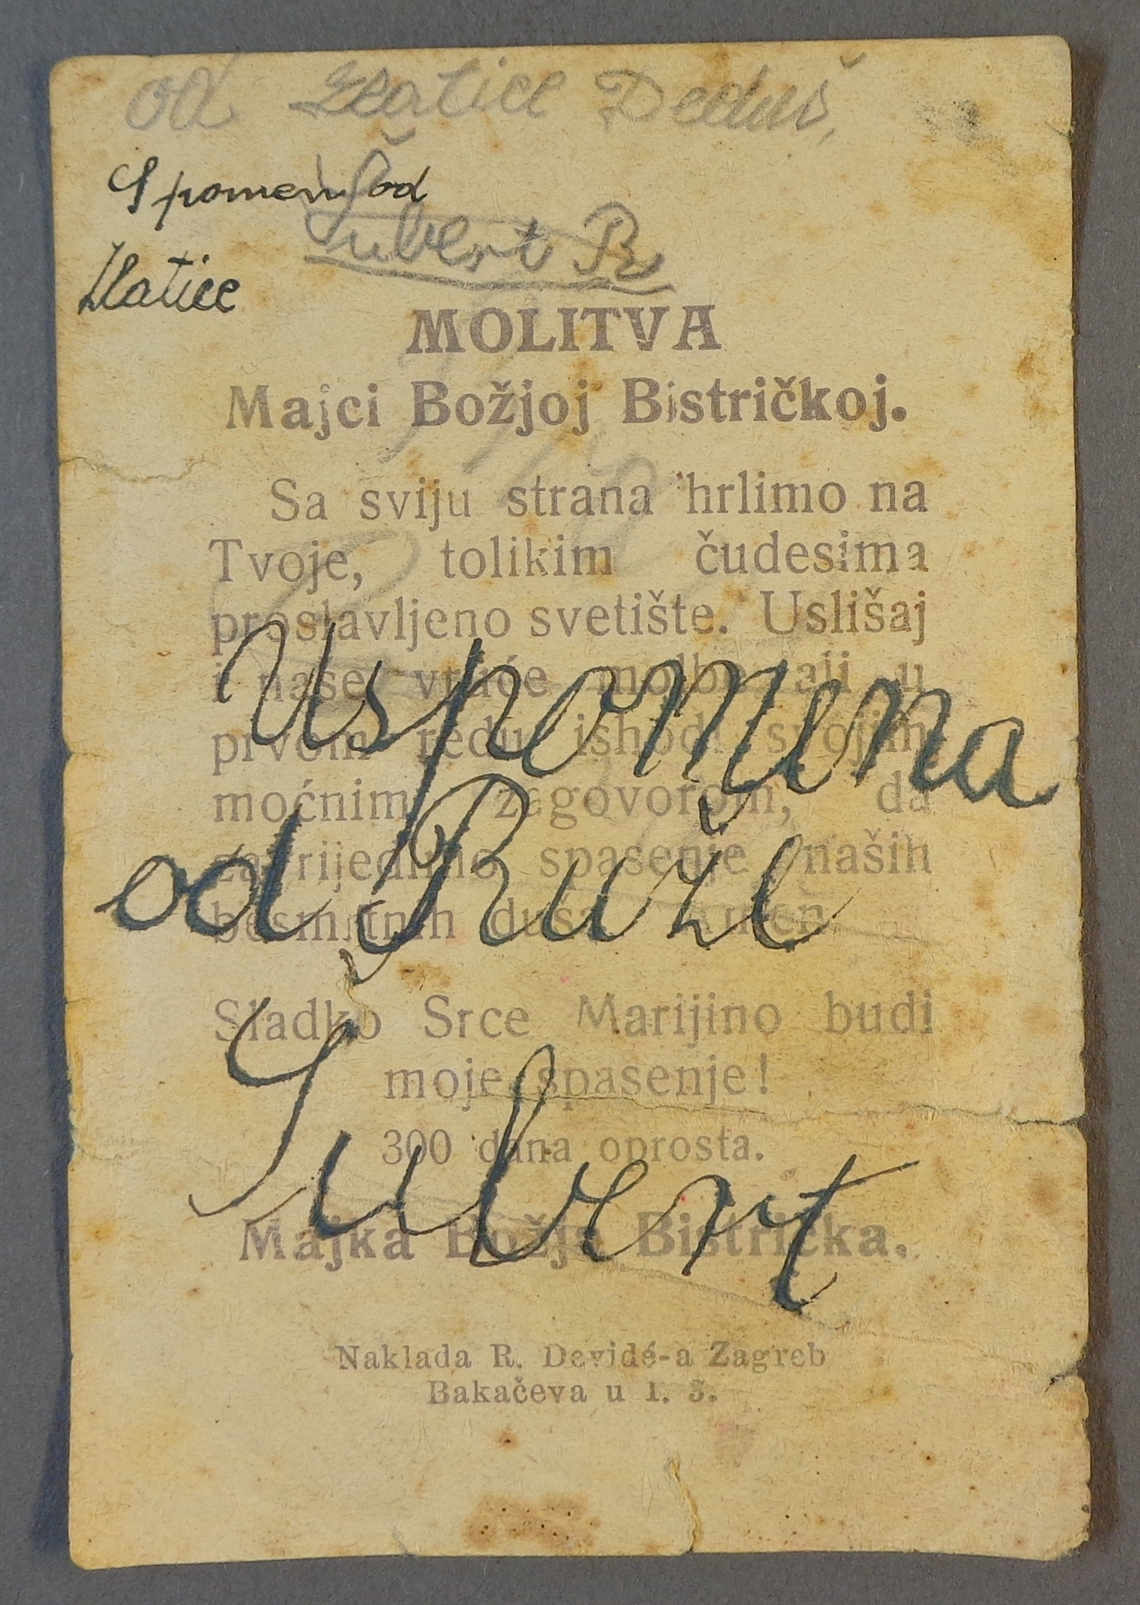 od Zlatice Deduš,
Spomen od
Šubert R
Zlatice
MOLITVA
Majci Božjoj Bistričkoj.
Sa sviju strana hrlimo na
Tvoje, tolikim čudesima
proslavljeno svetište. Uslišaj
i naše vruće molbe, ali u
Uspomena
prvom redu ishodi svojim
moćnim zagovorom, da
od Ruže
zavrijedimo spasenje naših
besmrtnih duša. Amen.
Sladko Srce Marijino budi
Šubert
moje spasenje!
300 dana oprosta.
Majka Božja Bistrička.
Naklada R. Devidé-a Zagreb
Bakačeva u l. 3.